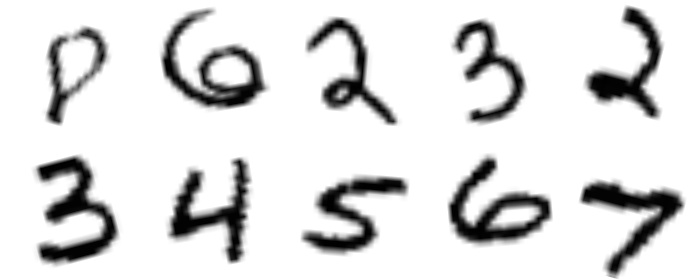 p 6 2 3 2
3 4 5 6 7